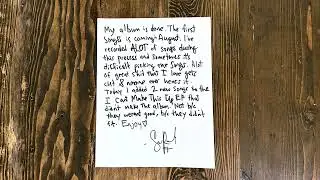 My album is done. The first
song is coming August. I've
recorded ALOT of songs during
this process and sometimes its
difficult picking the songs. Alot
of great shit that I love gets
cut & noone ever hears it.
Today I added 2 new songs to the
I Cant Make This Up EP that
didnt make the album. Not b/c
they werent good, b/c they didnt
fit. Enjoy